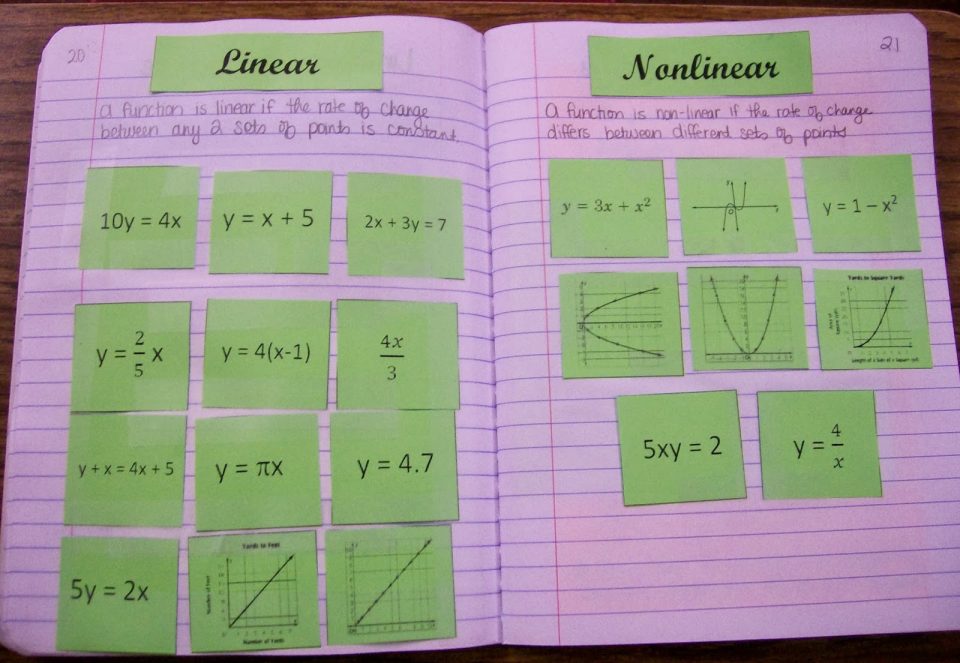 20
Linear
a function is linear if the rate of change
between any 2 sets of points is constant.
10y = 4x
y = x + 5
2x + 3y = 7
y = 2/5 x
y = 4(x-1)
4x/3
y + x = 4x + 5
y = πx
y = 4.7
5y = 2x
Yards to Feet
Number of Feet
Number of Yards
21
Nonlinear
a function is non-linear if the rate of change
differs between different sets of points
y = 3x + x²
y = 1 – x²
Yards to Square Yards
Length of a Side of a Square (yd)
5xy = 2
y = 4/x